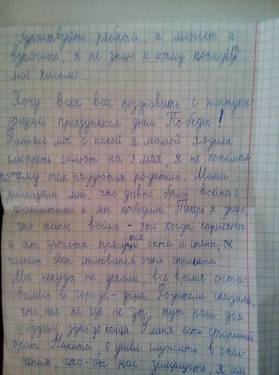 Здравствуйте ребята, а может и
взрослые, я не знаю к кому попадёт
моё письмо.
Хочу всех вас поздравить с наступа-
ющим праздником днём Победы!
Раньше мы с папой и мамой ходили
смотреть салют на 9 мая, я не понимал
почему так радуются родители. Мама
рассказала мне, что давно была война с
фашистами и мы победили. Теперь я знаю,
что такое война - это когда стреляют
и от грохота окна и стены и
может быть очень страшно
Мы никуда не уехали, все время оста-
вались в городе - дома Родители сказали,
что нас не где не ждут, тут наш дом
будем здесь до конца. У меня есть старший
брат Никита о ушел служить в опол-
чения, что-бы нас защищать, я им